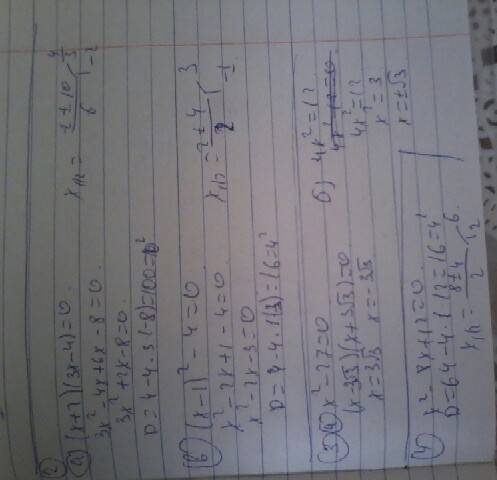 2
a) (x+2)(3x-4)=0
3x²-4x+6x-8=0.
3x²+2x-8=0.
D=4-4·3(-8)=100=10²
x₁/₂ = -2±10 / 6   4/3   -2
б) (x-1)²-4=0
x²-2x+1-4=0.
x²-2x-3=0
D=4-4·1(3)=16=4²
x₁/₂ = 2±4 / 2   3   -1
3 a) x²-27=0
(x-3√3)(x+3√3)=0
x=3√3   x=-3√3
б) 4x²=12
4x²=12
x²=3
x=±√3
4) x²-8x+12=0.
D=64-4·12=16=4²
x₁/₂ = 8±4 / 2   6   2